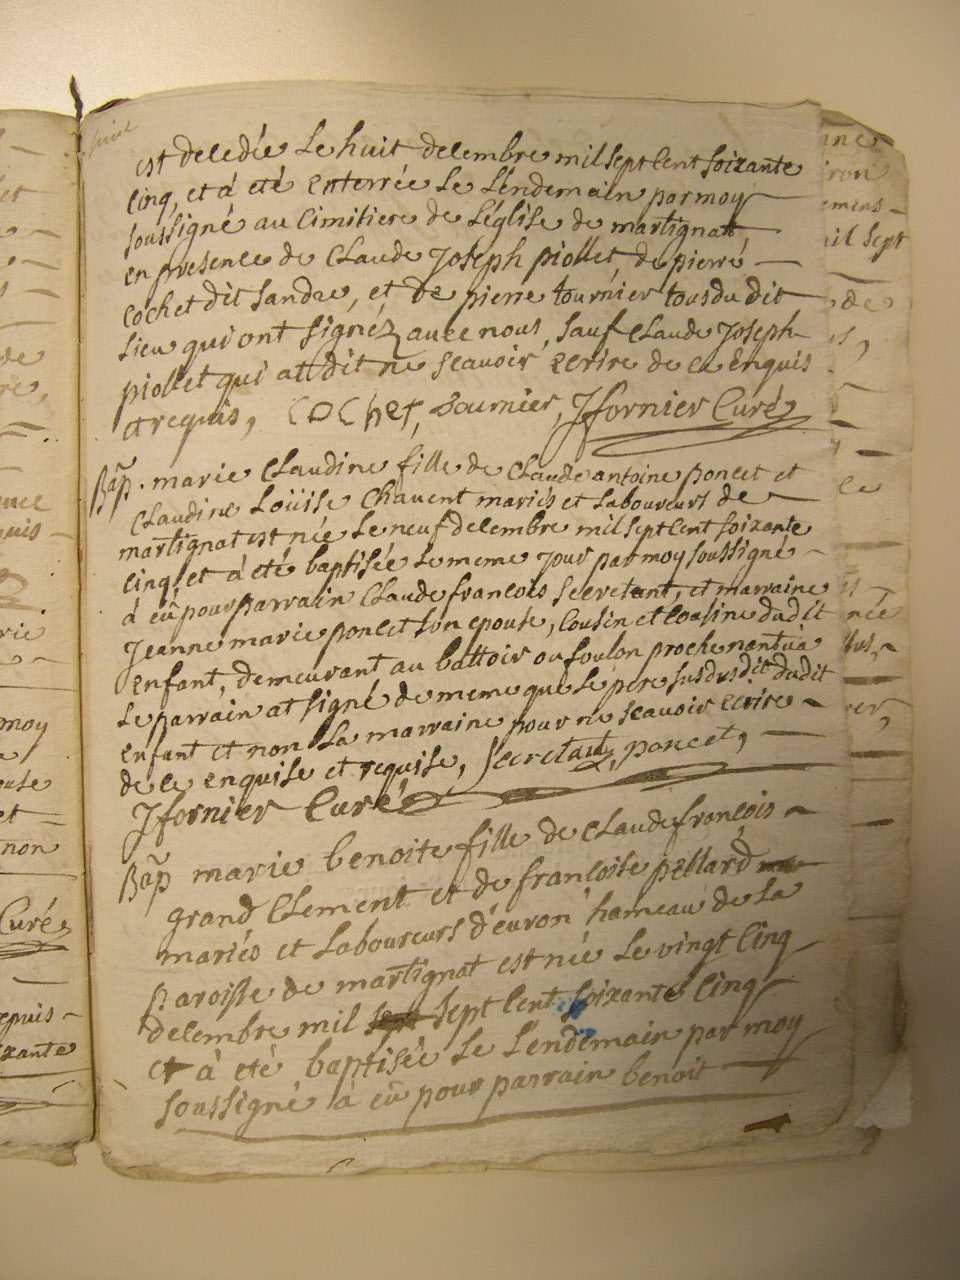 est decedée Le huit decembre mil sept Cent Soixante
Cinq, et à été enterrée Le Lendemain par moy
soussigné au Cimitiere de Léglise de martignat,
en presence de Claude Joseph piollet, de pierre
Cochet dit Sandre, et de pierre tournier tous du dit
Lieu qui ont signéz avec nous, sauf Claude Joseph
piollet qui at dit ne scavoir ecrire de ce enquis
et requis, COCHET, Tournier, Jfornier Curé
Bap. marie Claudine fille de Claude antoine poncet et
Claudine Loüise Chavent mariés et Laboureurs de
martignat est née Le neuf decembre mil sept Cent Soixante
Cinq, et à été baptisée Le meme jour par moy soussigné
à eû pour parrain Claude francois Secretant, et marraine
Jeanne marie poncet son epouse, Cousin et Cousine du dit
enfant, demeurant au battoir ou foulon proche nantua
Le parrain at signé de meme que Le pere susdit du dit
enfant et non La marraine pour ne scavoir ecrire
de ce enquise et requise, Secretant, poncet,
Jfornier Curé
Bap marie benoite fille de Claude francois
grand Clement et de francoise pellard
mariés et Laboureurs d'évron hameau de La
paroisse de martignat est née Le vingt Cinq
decembre mil sept Cent Soixante Cinq
et à été baptisée Le Lendemain par moy
soussigné à eû pour parrain benoit